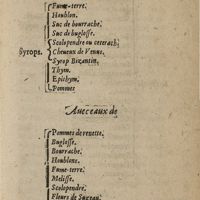 Fume-terre.
Houblon.
Suc de bourrache.
Suc de buglosse.
Scolopendre ou ceterach.
Syrops. Cheueux de Venus.
Syrop Bizantin.
Thym.
Epithym.
Pommes
Auec eaux de
Pommes de renette.
Buglosse.
Bourrache.
Houblons.
Fume-terre.
Melisse.
Scolopendre.
Fleurs de Suzeau.